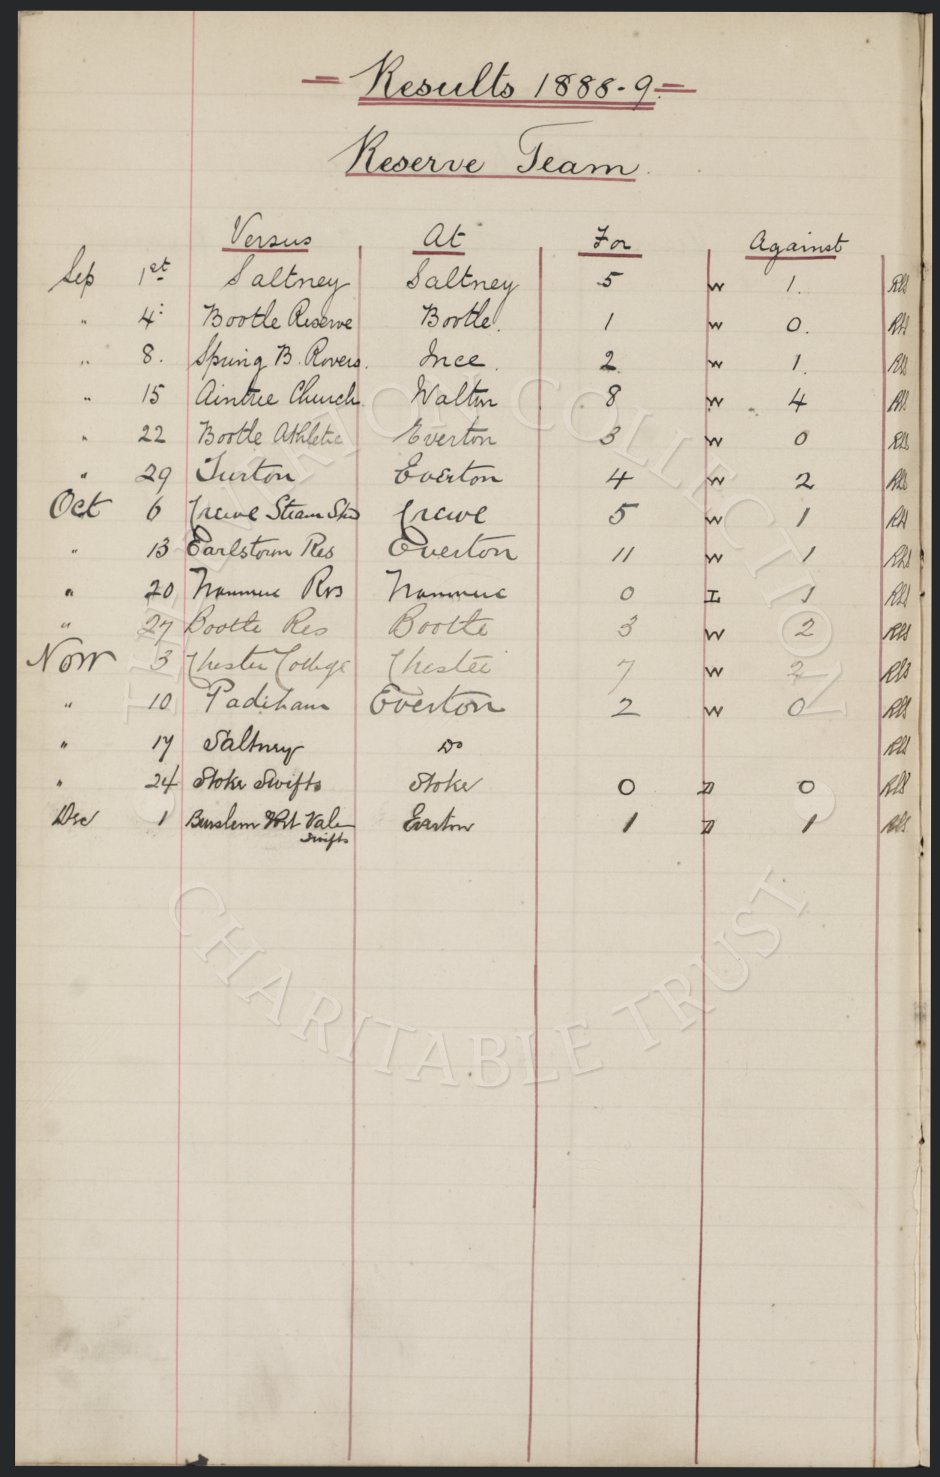 Results 1888-9.
Reserve Team.
Versus At For Against
Sep 1st Saltney Saltney 5 W 1.
" 4 Bootle Reserve Bootle. 1 W 0.
" 8. Spring B. Rovers. Ince. 2 W 1.
" 15 Aintree Church Walton 8 W 4
" 22 Bootle Athletic Everton 3 W 0
" 29 Turton Everton 4 W 2
Oct 6 Crewe Steam Crewe 5 W 1
" 13 Earlstown Res Everton 11 W 1
" 20 0 L 1
" 27 Bootle Res Bootle 3 W 2
Nov 3 Chester College Chester 7 W 2
" 10 Padiham Everton 2 W 0
" 17 Saltney Do
" 24 Stoke Swifts Stoke 0 D 0
Dec 1 Burslem Port Vale Everton 1 D 1
Swifts
EVERTON COLLECTION
CHARITABLE TRUST